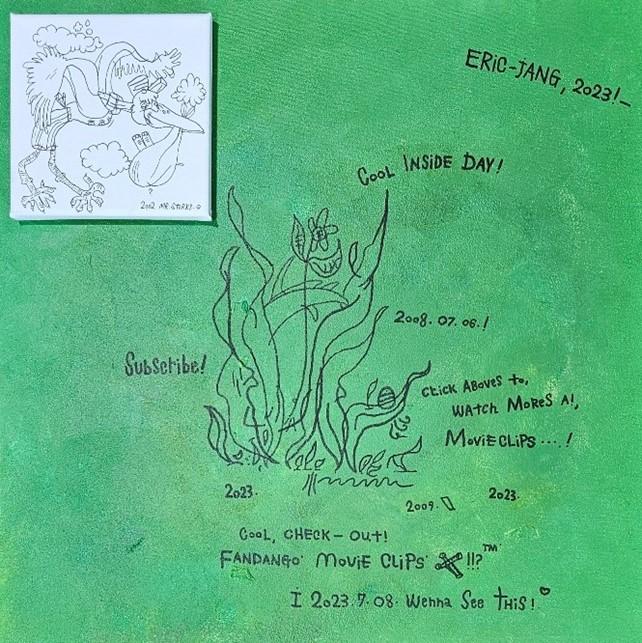 ERIC-JANG, 2023!
2002 MR. STORKS.
?
COOL INSIDE DAY!
2008. 07. 06.!
Subscribe!
CLICK ABOVES to,
WATCH MORES A!,
MOVIECLIPS ....!
2023.
2009.
2023.
COOL, CHECK - OUT!
FANDANGO' MOVIE CLIPS' !!?™
I 2023. 7. 08. Wenna See THIS!